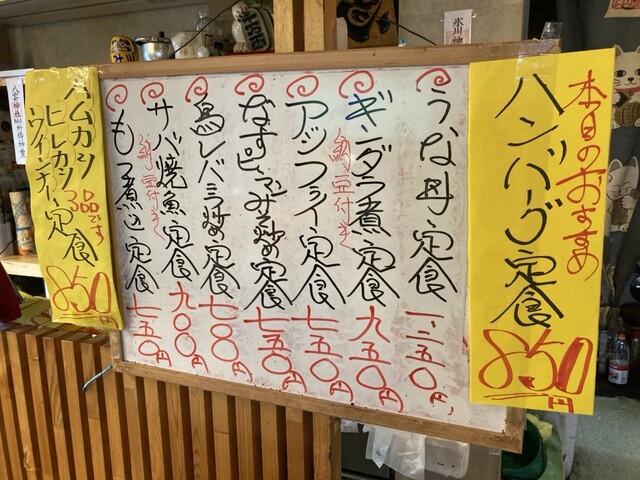 本日のおすすめ
ハンバーグ定食
850円
うな丼定食 一、二五〇円
ギンダラ煮定食 九五〇円
納豆付き
アジフライ定食 七五〇円
なすピーマンみそ炒め定食 七五〇円
鳥レバニラ炒め定食 七〇〇円
サバ焼魚定食 九〇〇円
納豆付き
もつ煮込定食 七五〇円
ハムカツ
ヒレカツ 3品です
ウインナー定食
850円
氷川神